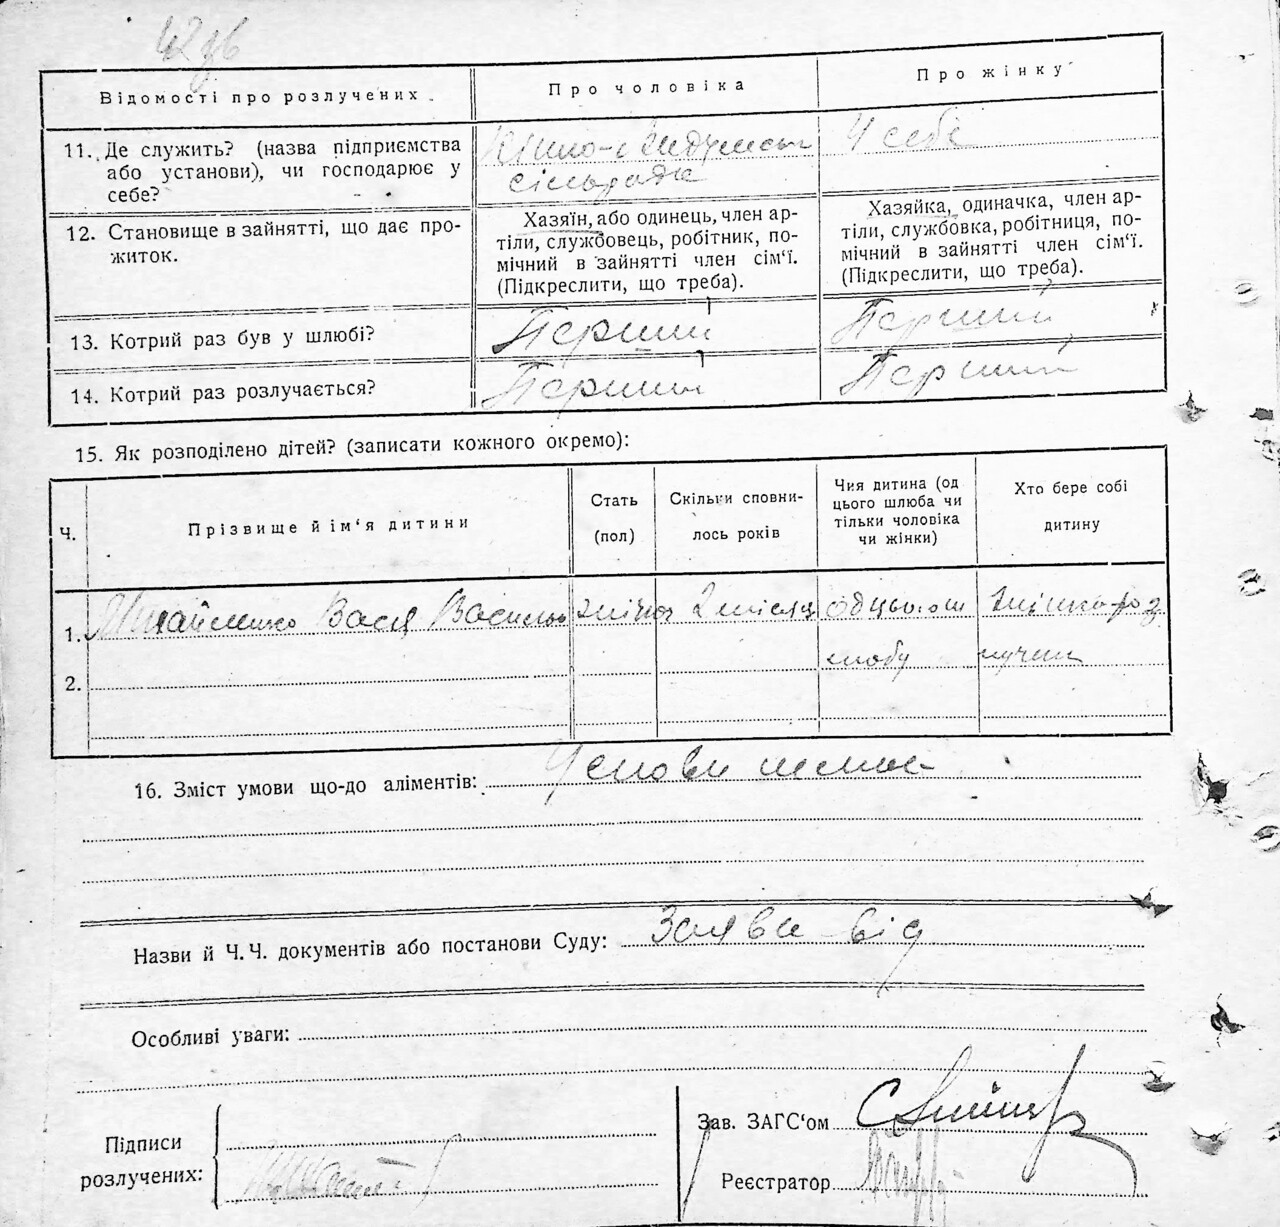 42зв
Відомості про розлучених.
Про чоловіка
Про жінку
11. Де служить? (назва підприємства
або установи), чи господарює у
себе?
сільради
У себе
12. Становище в зайнятті, що дає про-
житок.
Хазяїн, або одинець, член ар-
тіли, службовець, робітник, по-
мічний в зайнятті член сім‘ї.
(Підкреслити, що треба).
Хазяйка, одиначка, член ар-
тіли, службовка, робітниця, по-
мічний в зайнятті член сім‘ї.
(Підкреслити, що треба).
13. Котрий раз був у шлюбі?
Перший
Перший
14. Котрий раз розлучається?
Перший
Перший
15. Як розподілено дітей? (записати кожного окремо):
Ч.
Прізвище й ім‘я дитини
Стать
(пол)
Скільки сповни-
лось років
Чия дитина (од
цього шлюба чи
тільки чоловіка
чи жінки)
Хто бере собі
дитину
1. Вася 2 місяц од цього ш
любу
2.
16. Зміст умови що-до аліментів: Умови немає
Назви й Ч.Ч. документів або постанови Суду: Заяви від
Особливі уваги:
Підписи
розлучених:
Зав. ЗАГС‘ом
Реєстратор